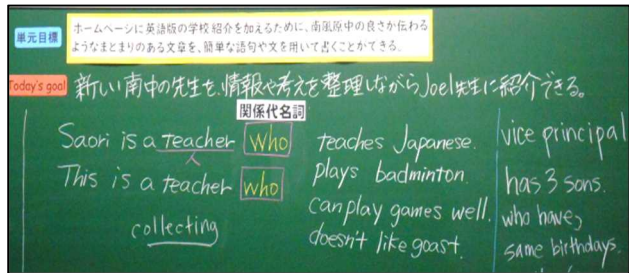 単元目標
ホームページに英語版の学校紹介を加えるために、南風原中の良さが伝わる
ようなまとまりのある文章を、簡単な語句や文を用いて書くことができる。
Today's goal
新しい南中の先生を、情報や考えを整理しながらJoel先生に紹介できる。
関係代名詞
Saori is a teacher who
This is a teacher who
collecting
teaches Japanese.
plays badminton
can play games well.
doesn't like goast.
vice principal
has 3 sons.
who have
same birthdays.